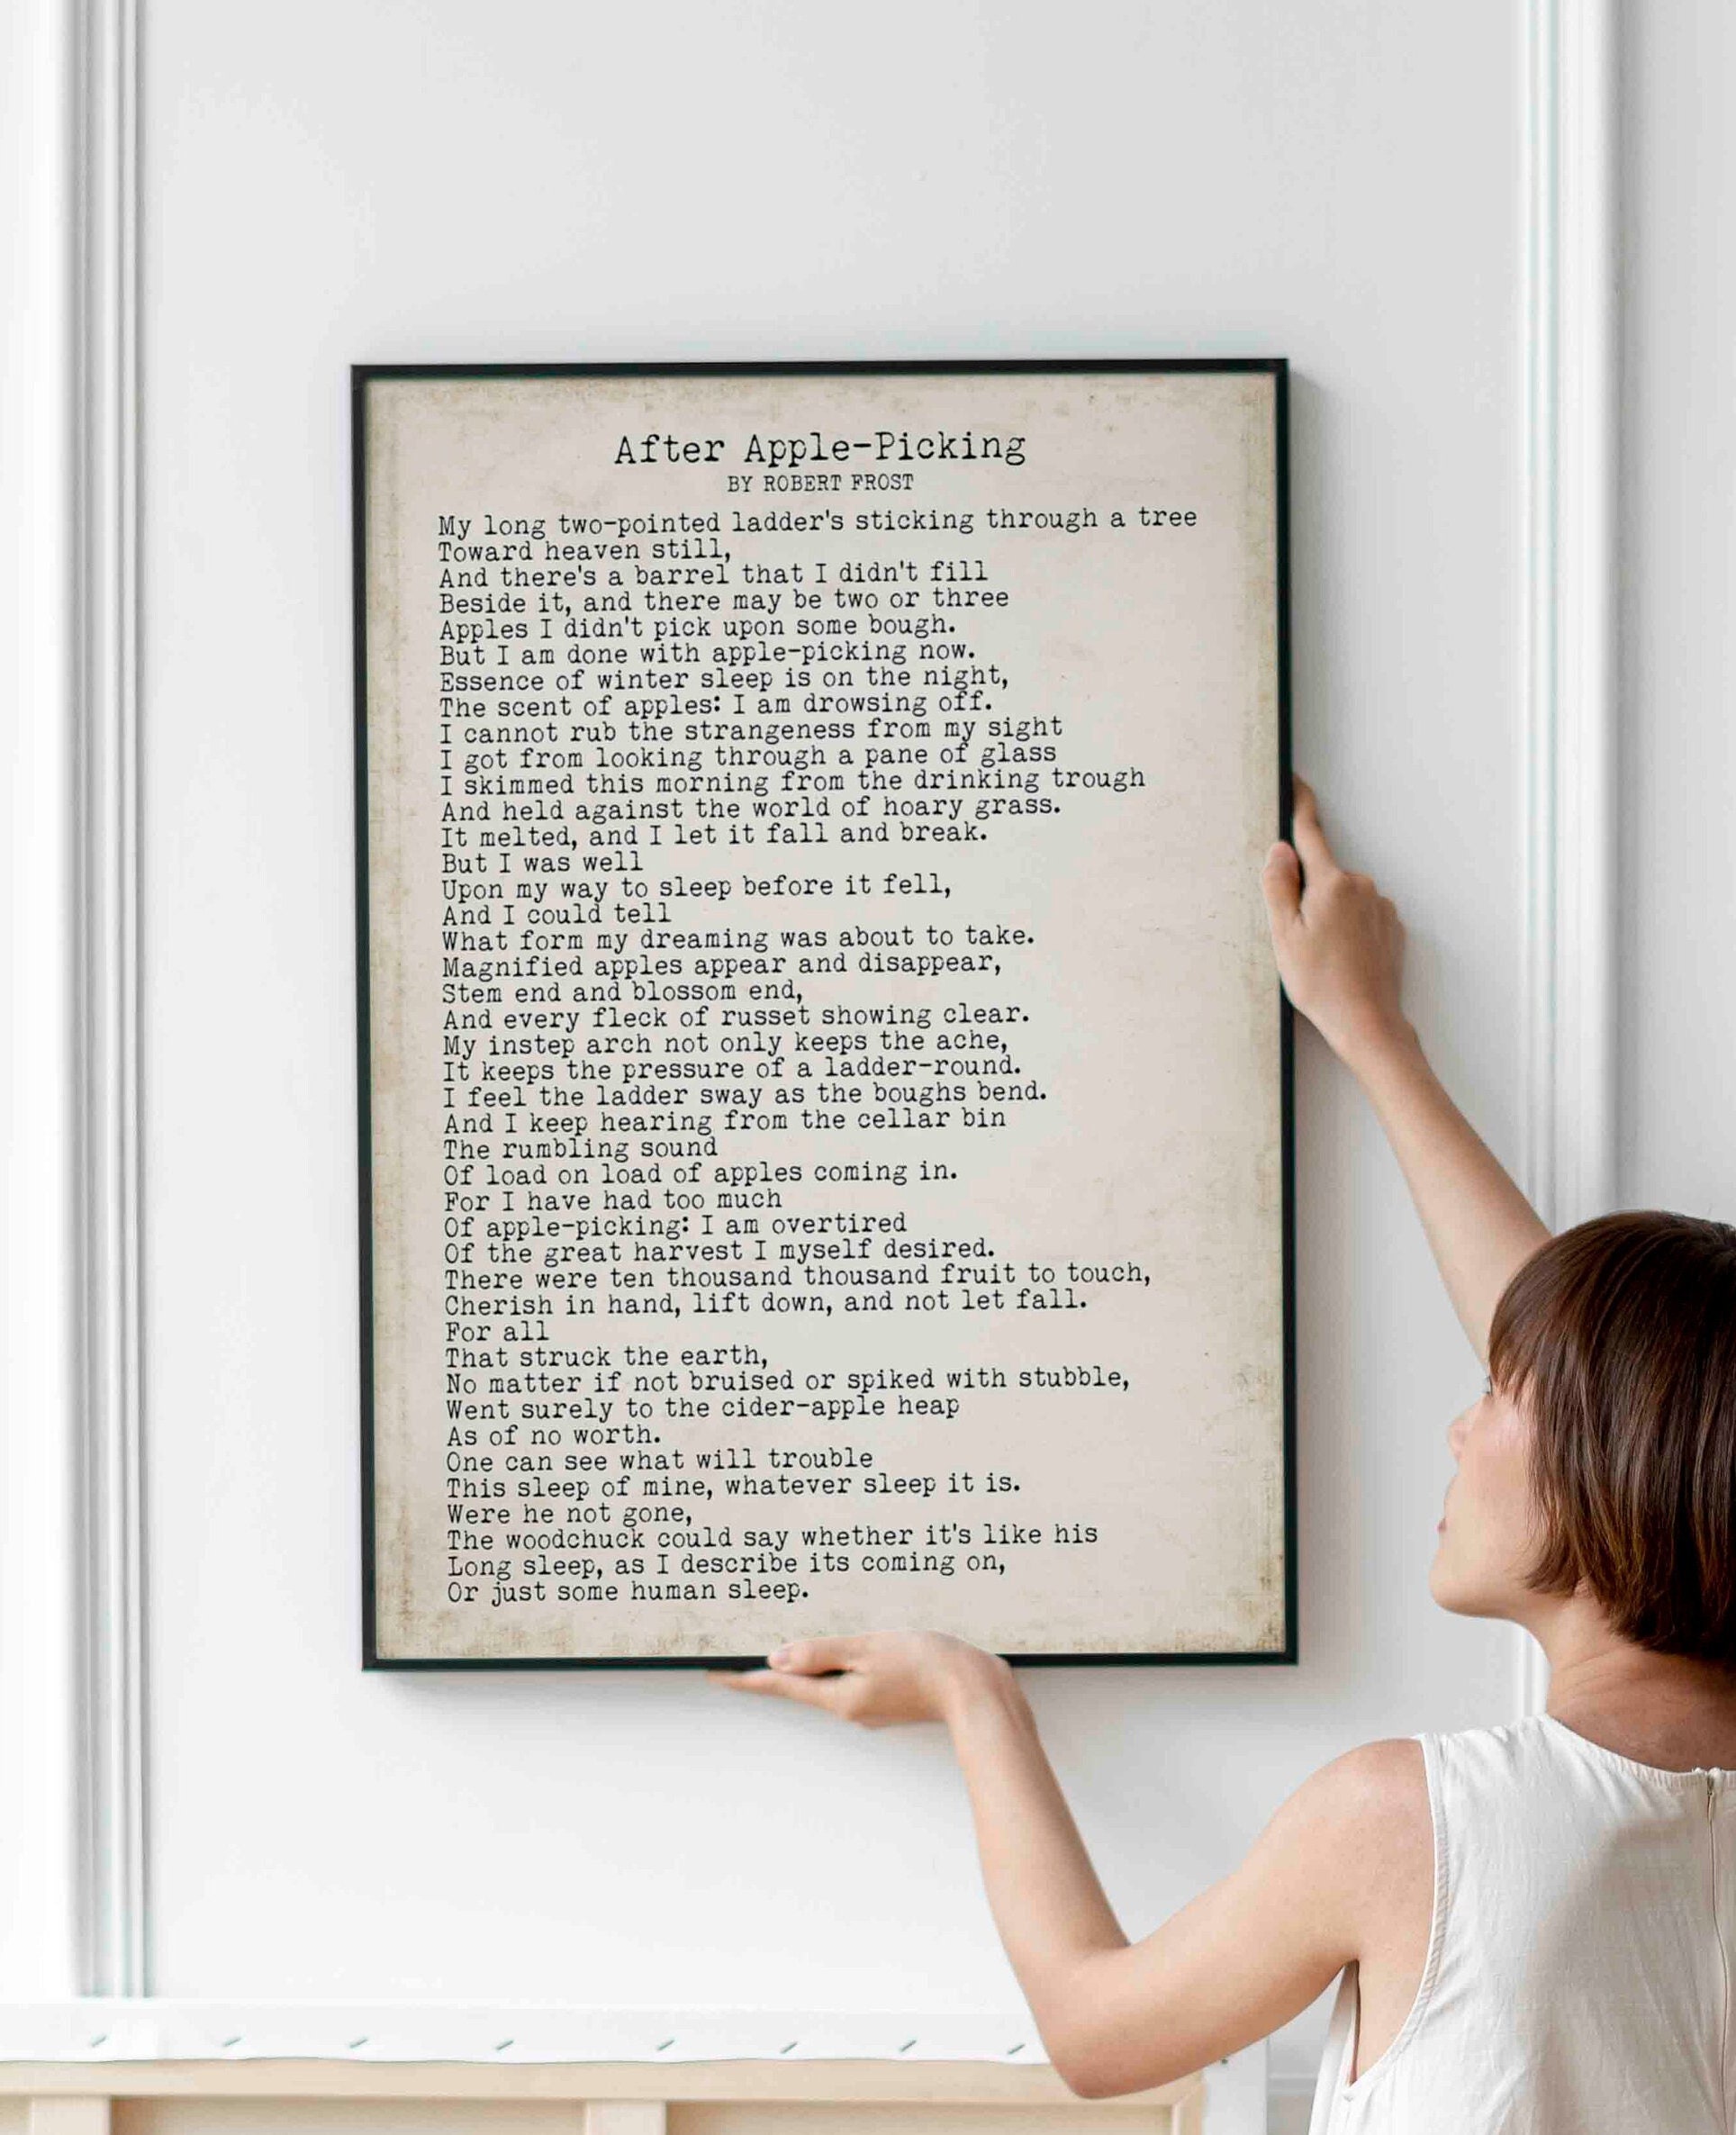 After Apple-Picking
BY ROBERT FROST
My long two-pointed ladder's sticking through a tree
Toward heaven still,
And there's a barrel that I didn't fill
Beside it, and there may be two or three
Apples I didn't pick upon some bough.
But I am done with apple-picking now.
Essence of winter sleep is on the night,
The scent of apples: I am drowsing off.
I cannot rub the strangeness from my sight
I got from looking through a pane of glass
I skimmed this morning from the drinking trough
And held against the world of hoary grass.
It melted, and I let it fall and break.
But I was well
Upon my way to sleep before it fell,
And I could tell
What form my dreaming was about to take.
Magnified apples appear and disappear,
Stem end and blossom end,
And every fleck of russet showing clear.
My instep arch not only keeps the ache,
It keeps the pressure of a ladder-round.
I feel the ladder sway as the boughs bend.
And I keep hearing from the cellar bin
The rumbling sound
Of load on load of apples coming in.
For I have had too much
Of apple-picking: I am overtired
Of the great harvest I myself desired.
There were ten thousand thousand fruit to touch,
Cherish in hand, lift down, and not let fall.
For all
That struck the earth,
No matter if not bruised or spiked with stubble,
Went surely to the cider-apple heap
As of no worth.
One can see what will trouble
This sleep of mine, whatever sleep it is.
Were he not gone,
The woodchuck could say whether it's like his
Long sleep, as I describe its coming on,
Or just some human sleep.